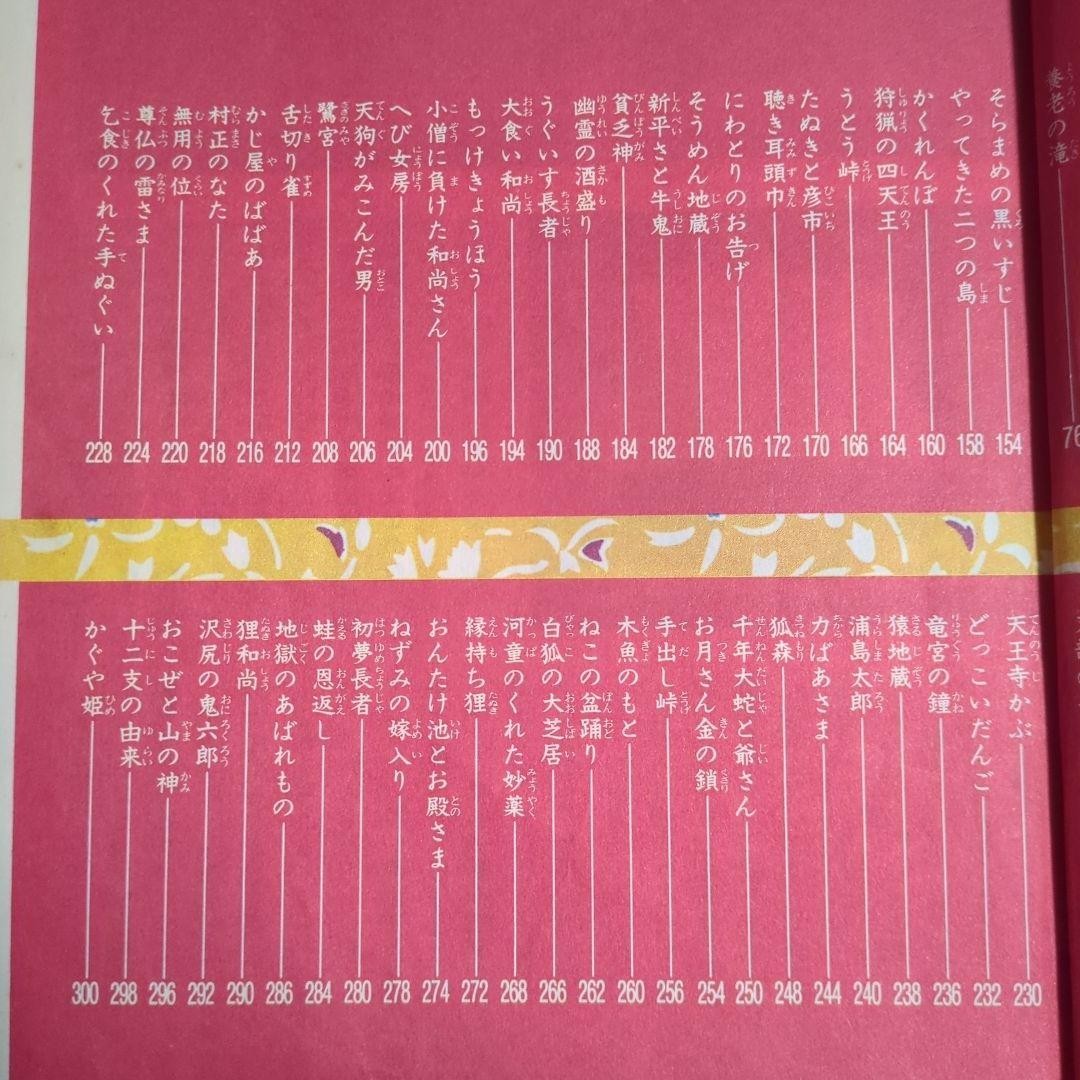 養老の滝
76
そらまめの黒いすじ 154
やってきた二つの島 158
かくれんぼ 160
狩猟の四天王 164
うとう峠 166
たぬきと彦市 170
聴き耳頭巾 172
にわとりのお告げ 176
そうめん地蔵 178
新平さと牛鬼 182
貧乏神 184
幽霊の酒盛り 188
うぐいす長者 190
大食い和尚 194
もっけきょうほう 196
小僧に負けた和尚さん 200
へび女房 204
天狗がみこんだ男 206
鷺宮 208
舌切り雀 212
かじ屋のばばあ 216
村正のなた 218
無用の位 220
尊仏の雷さま 224
乞食のくれた手ぬぐい 228
天王寺かぶ 230
どっこいだんご 232
竜宮の鐘 236
猿地蔵 238
浦島太郎 240
力ばあさま 244
狐森 248
千年大蛇と爺さん 250
お月さん金の鎖 254
手出し峠 256
木魚のもと 260
ねこの盆踊り 262
白狐の大芝居 266
河童のくれた妙薬 268
縁持ち狸 272
おんたけ池とお殿さま 274
ねずみの嫁入り 278
初夢長者 280
蛙の恩返し 284
地獄のあばれもの 286
狸和尚 290
沢尻の鬼六郎 292
おこぜと山の神 296
十二支の由来 298
かぐや姫 300